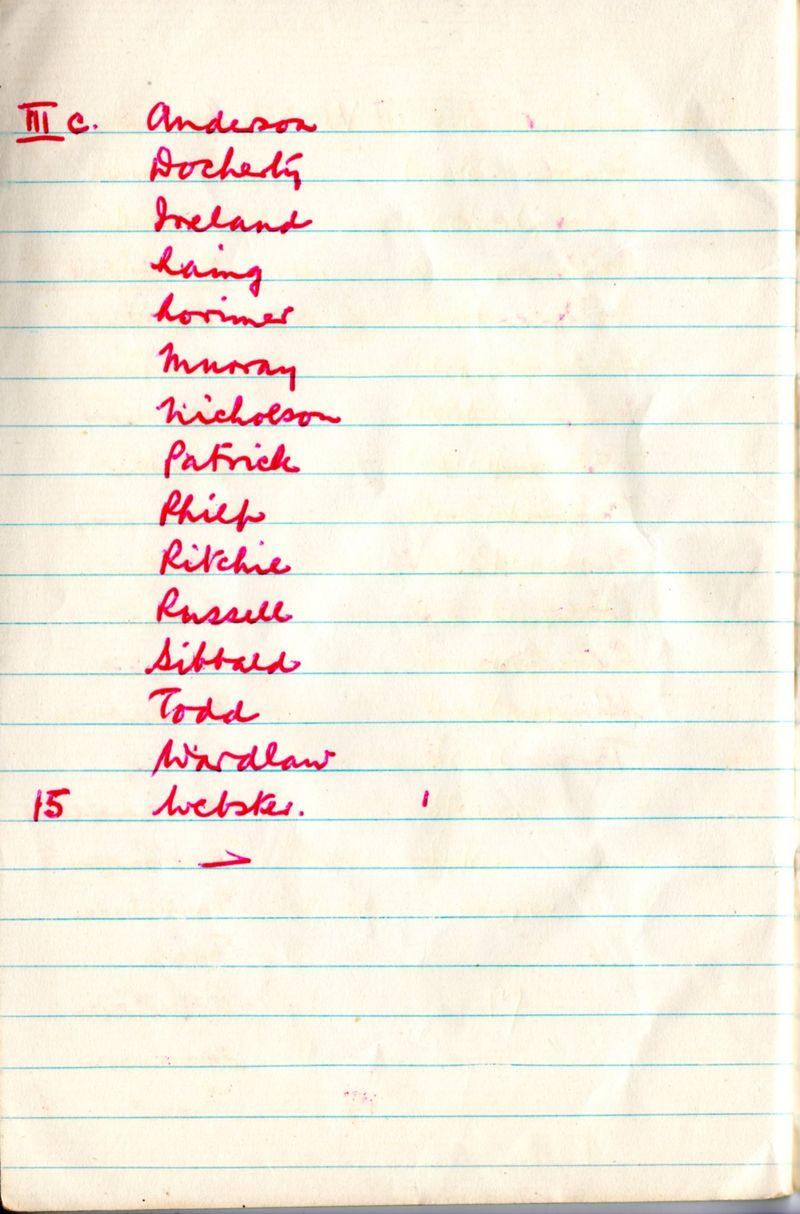 III c. Anderson
Docherty
Ireland
Laing
Lorimer
Murray
Nicholson
Patrick
Philp
Ritchie
Russell
Sibbald
Todd
Wardlaw
15 Webster. 1